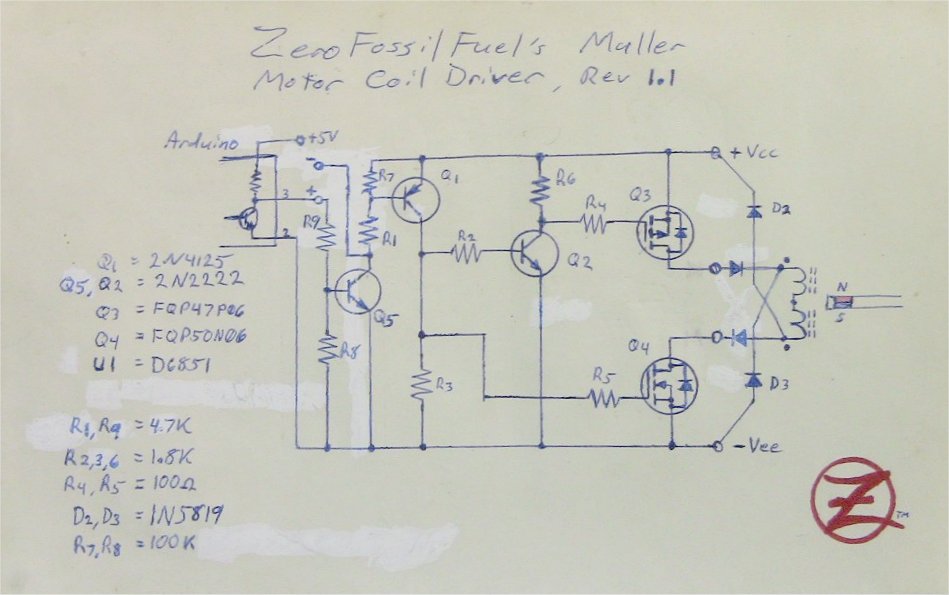 ZeroFossilFuel's Muller
Motor Coil Driver, Rev 1.1
Arduino
+5V
-
+
3
2
R9
R7
R1
Q1
R2
R6
R4
Q3
+Vcc
D2
Q2
Q5
R8
R3
R5
Q4
D3
-Vee
N
S
Q1 = 2N4125
Q5, Q2 = 2N2222
Q3 = FQP47P06
Q4 = FQP50N06
U1 = D6851
R1, R9 = 4.7K
R2,3,6 = 1.8K
R4, R5 = 100Ω
D2, D3 = 1N5819
R7, R8 = 100K
Z
TM